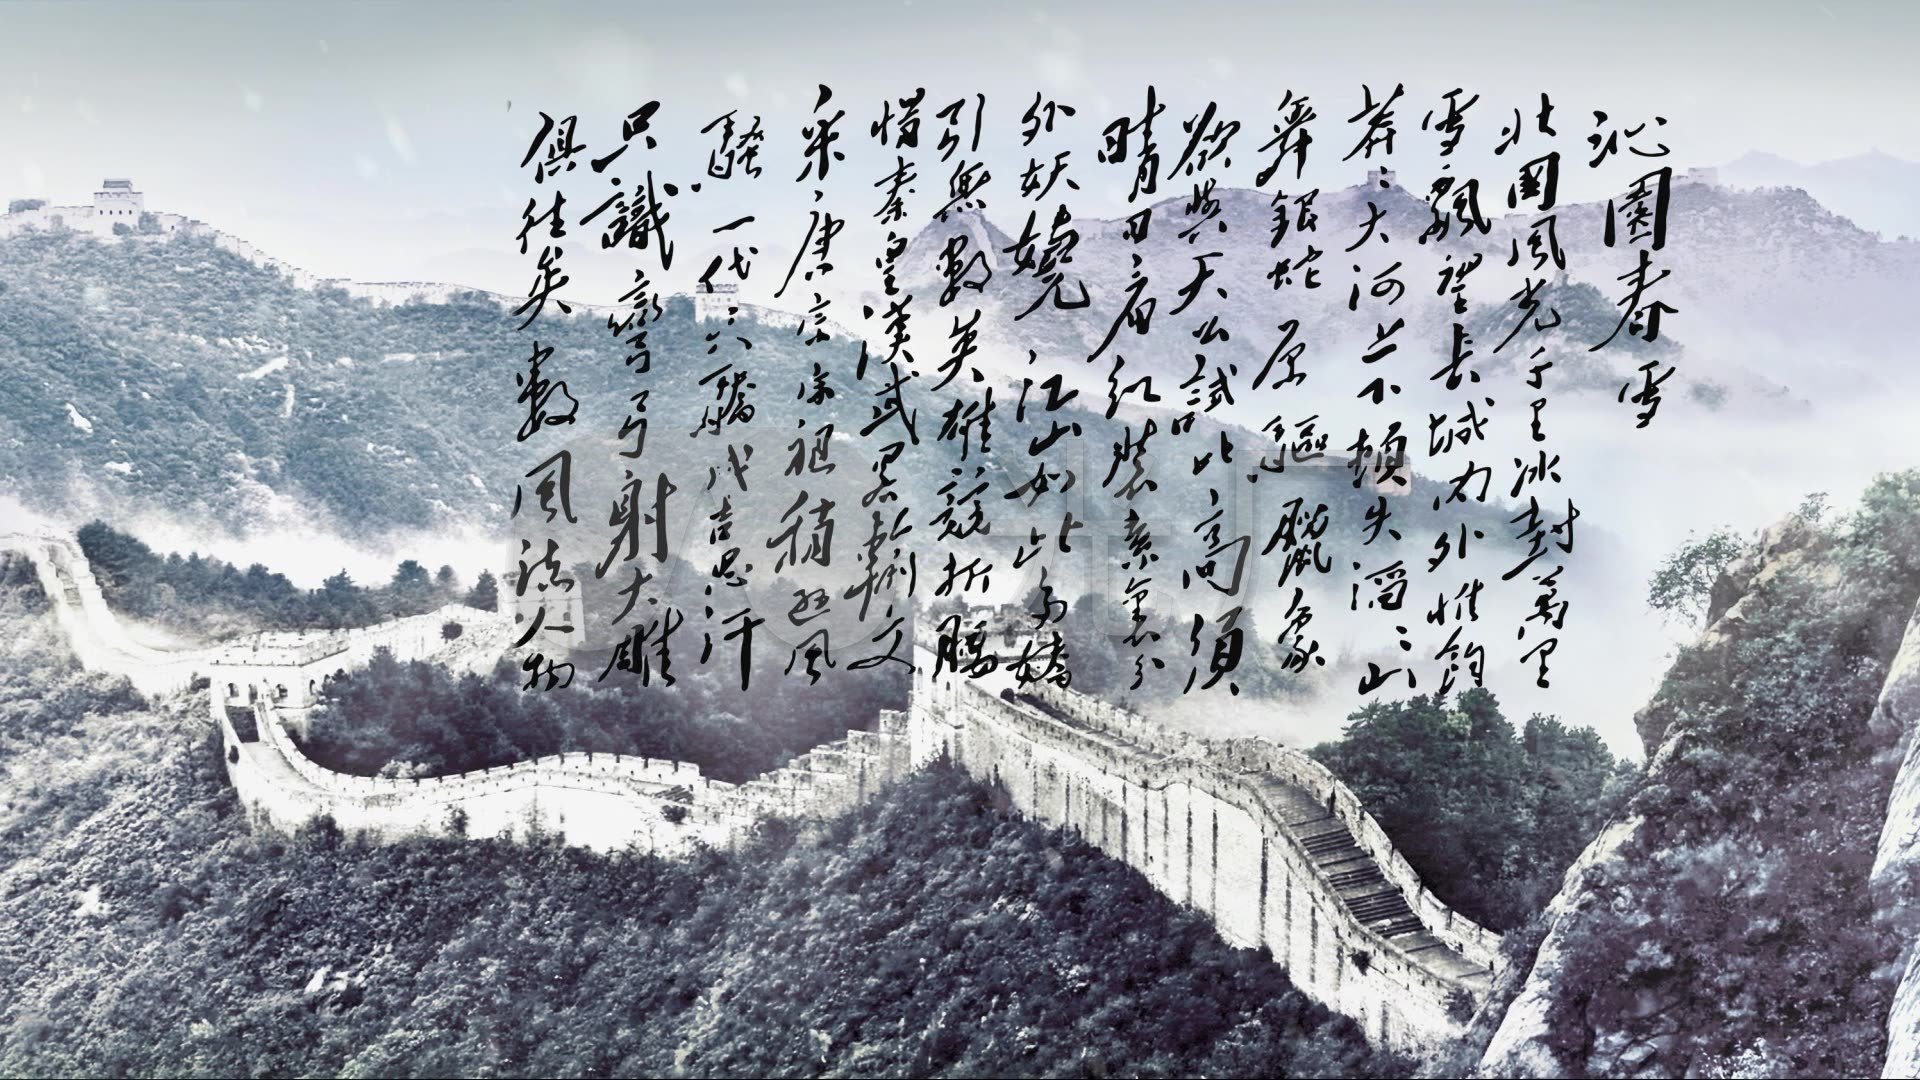 沁園春雪
北國風光千里冰封萬里
雪飄望長城內外惟餘
莽莽大河上下頓失滔滔山
舞銀蛇原驅臘象
欲與天公試比高須
晴日看紅裝素裹分
外妖嬈江山如此多嬌
引無數英雄競折腰
惜秦皇漢武略輸文
采唐宗宋祖稍遜風
騷一代天驕成吉思汗
只識彎弓射大雕
俱往矣數風流人物